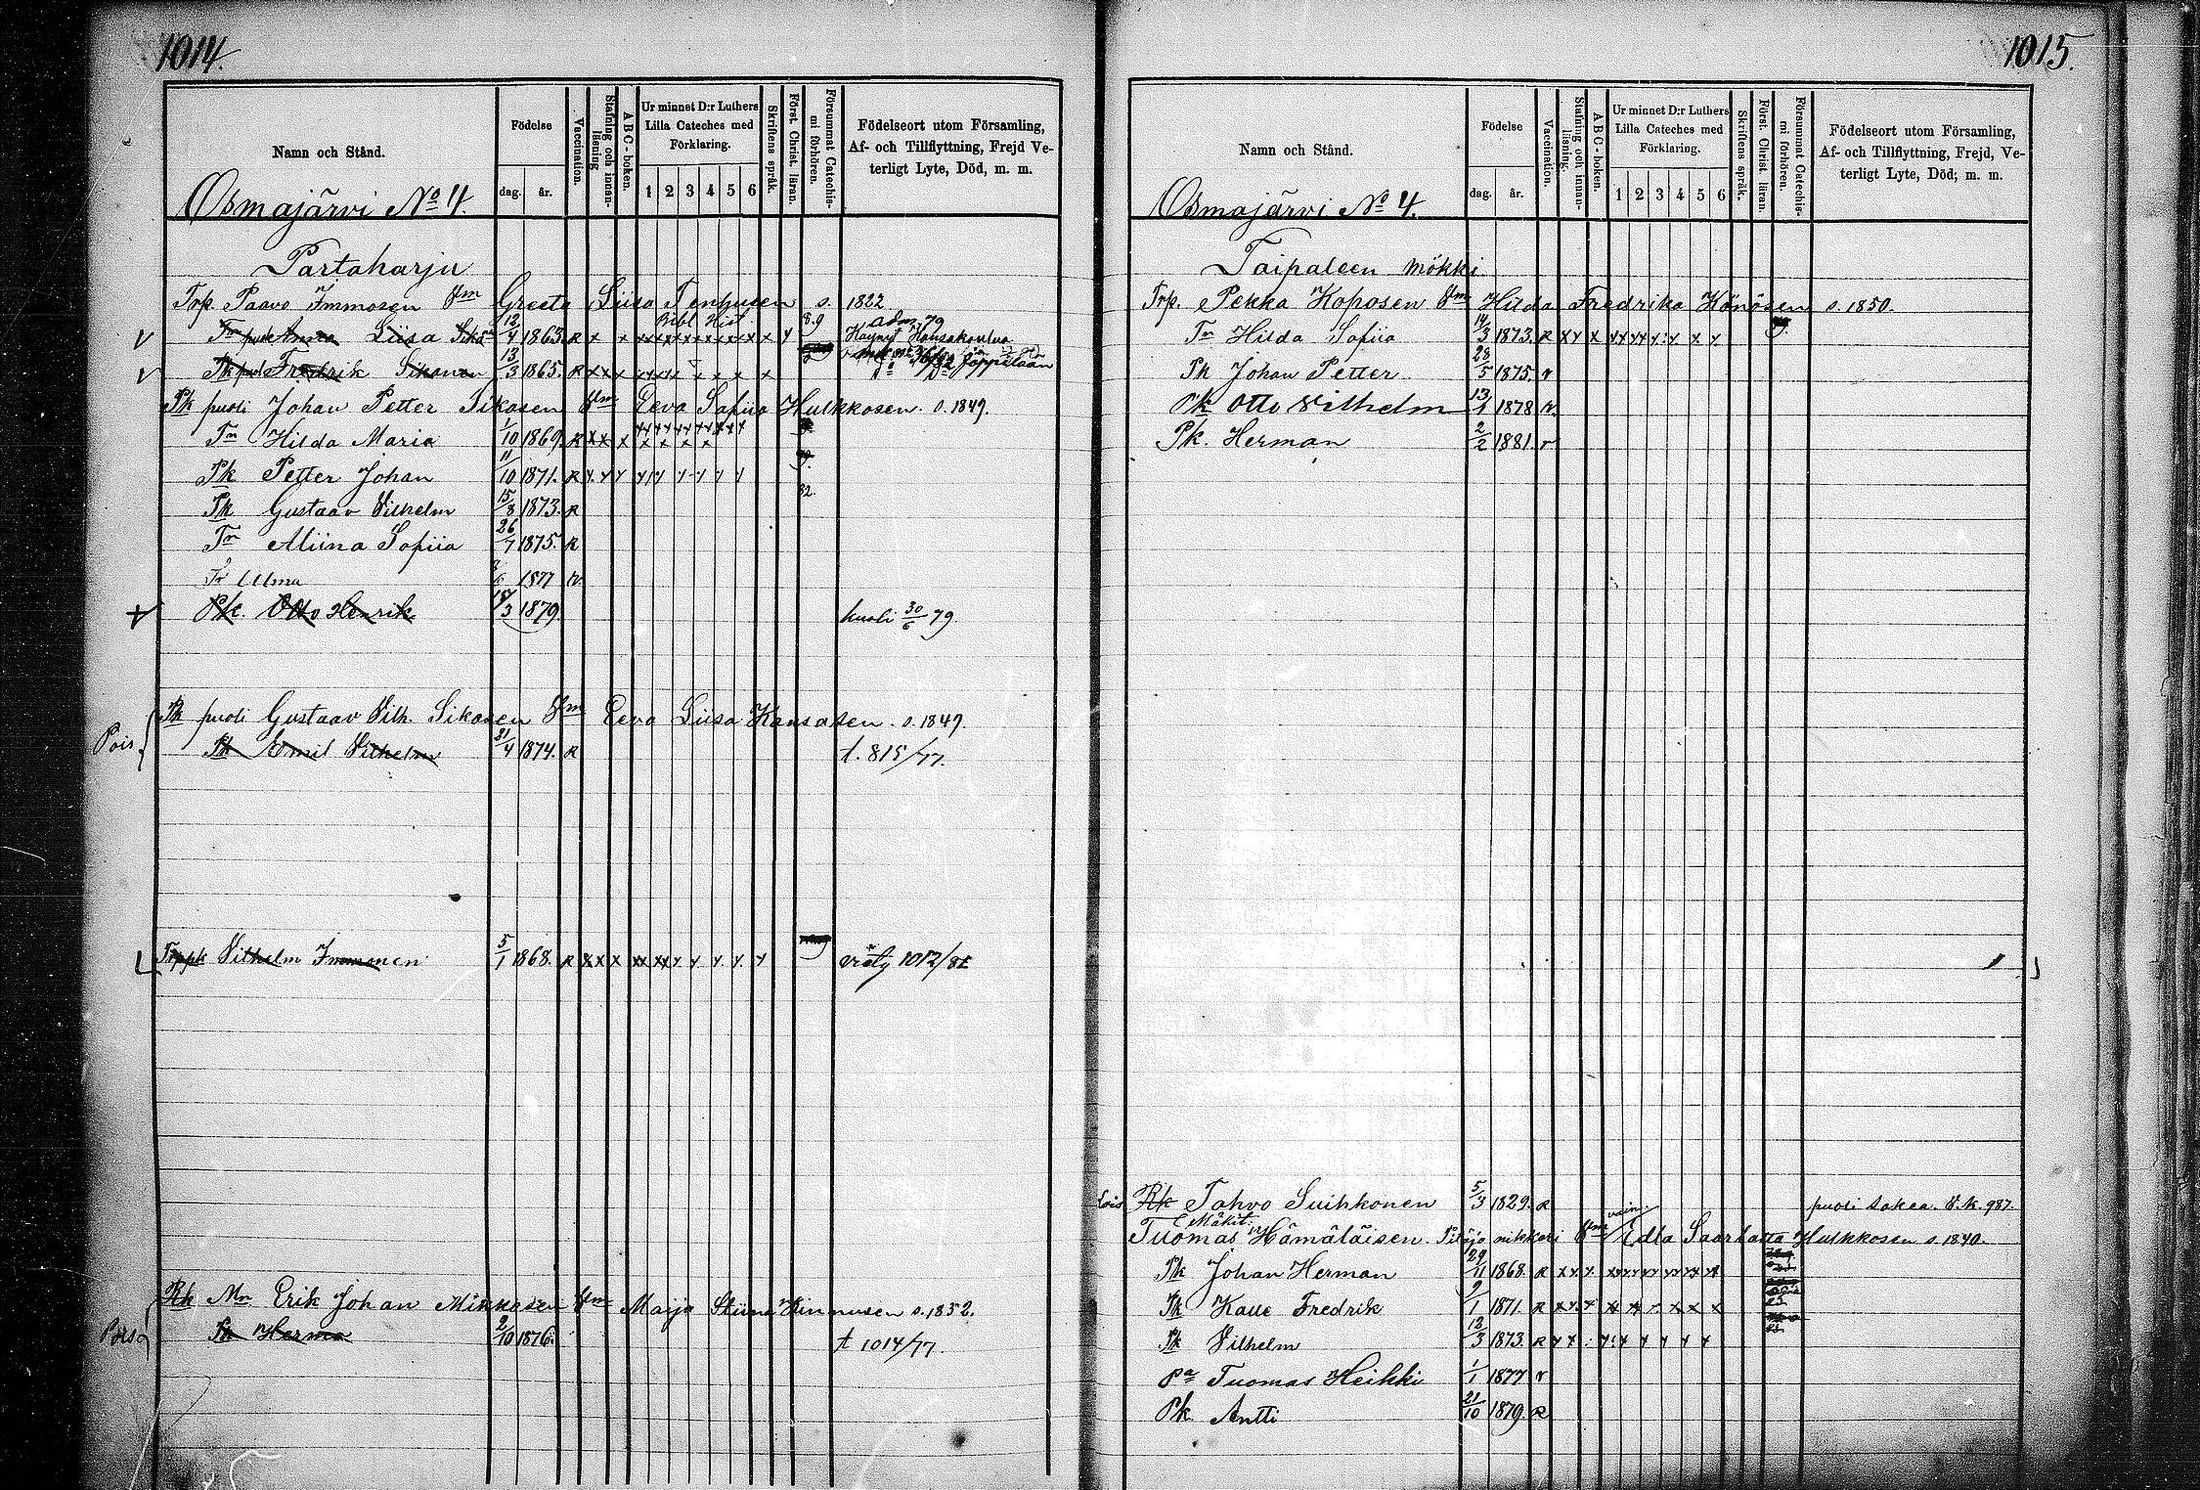 1014.
Namn och Stånd.
Födelse
dag. år.
Vaccination.
Stafning och innan-läsning
ABC-boken.
Ur minnet D:r Luthers
Lilla Cateches med
Förklaring.
1 2 3 4 5 6
Skriftens språk.
Först. Christ. läran.
Försummat Catechis-mi förhören.
Födelseort utom Församling,
Af- och Tillflyttning, Frejd Ve-
terligt Lyte, Död, m. m.
Osmajärvi No 4.
Partaharju
Trp. Paavo Immosen Vm Greeta Liisa Tenhusen s. 1822
Bibl. Hist adm. 79
Liisa 12/4 1863. R x x x Kansakoulua
Fredrik Sikanen 13/3 1865. R x x x
Pk puoli Johan Petter Sikasen Vm Eeva Sofiia Hulkkosen. s. 1849.
Tr Hilda Maria 1/10 1869. R x x x
Pk Petter Johan 11/10 1871. R 82.
Pk Gustaav Vilhelm 15/8 1873. R
Tr Miina Sofiia 26/7 1875. R
Tr Alma 1877 r.
Pk. Otto Henrik 3 1879. kuoli 30/6 79.
Pk puoli Gustaav Vilh. Sikasen Vm Eeva Liisa Kansasen. s. 1849.
Pois Pk Emil Vilhelm 21/4 1874. R t. 815/77.
Trppk Vilhelm Immonen 5/1 1868. R x x x viety 1012/81
Rk Mn Erik Johan Mikkasen Vm Maija Stiina Kinnusen s. 1852.
Pois Pk Herman 2/10 1876. t 1014/77.
1015.
Namn och Stånd.
Födelse
dag. år.
Vaccination.
Stafning och innan-läsning.
ABC-boken.
Ur minnet D:r Luthers
Lilla Cateches med
Förklaring.
1 2 3 4 5 6
Skriftens språk.
Först. Christ. läran.
Försummat Catechis-mi förhören.
Födelseort utom Församling,
Af- och Tillflyttning, Frejd, Ve-
terligt Lyte, Död; m. m.
Osmajärvi No 4.
Taipaleen mökki
Trp. Pekka Koposen Vm Hilda Fredrika Könösen s. 1850.
Tr Hilda Sofiia 14/3 1873. R x x x
Pk Johan Petter 28/5 1875. r
Pk Otto Vilhelm 13/1 1878 r.
Pk. Herman 2/2 1881. r
Lois Rk Tahvo Suihkonen 5/3 1829. R puoli sokea. V.k. 987.
Tuomas Hämäläisen. nikkari Vm Edla Saarlatta Hulkkosen s. 1840.
Pk Johan Herman 29/11 1868. R
Pk Kalle Fredrik 9/1 1871. R
Pk Vilhelm 12/3 1873. R
Pa Tuomas Heikki 1/1 1877 r
Pk. Antti 21/10 1879. R